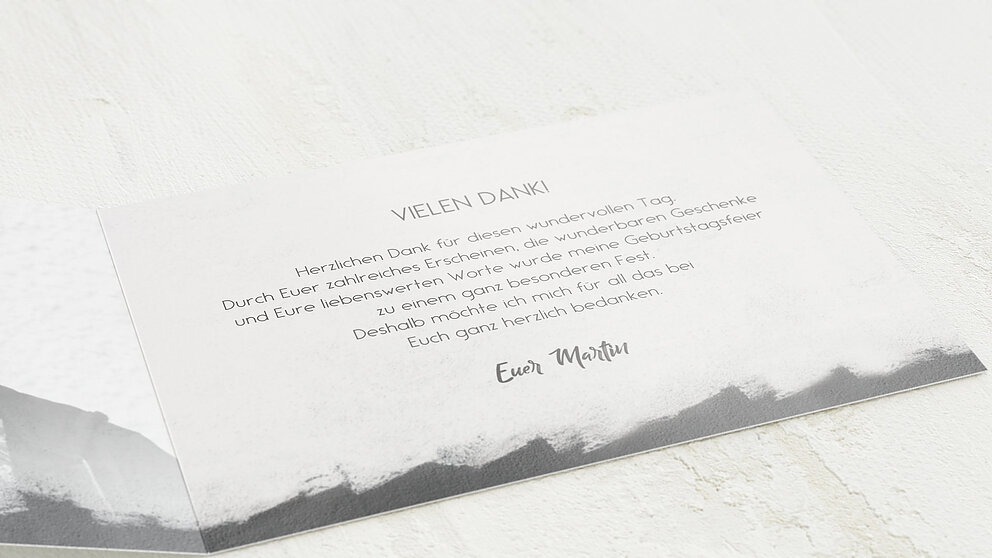 VIELEN DANK!
Herzlichen Dank für diesen wundervollen Tag.
Durch Euer zahlreiches Erscheinen, die wunderbaren Geschenke
und Eure liebenswerten Worte wurde meine Geburtstagsfeier
zu einem ganz besonderen Fest.
Deshalb möchte ich mich für all das bei
Euch ganz herzlich bedanken.
Euer Martin